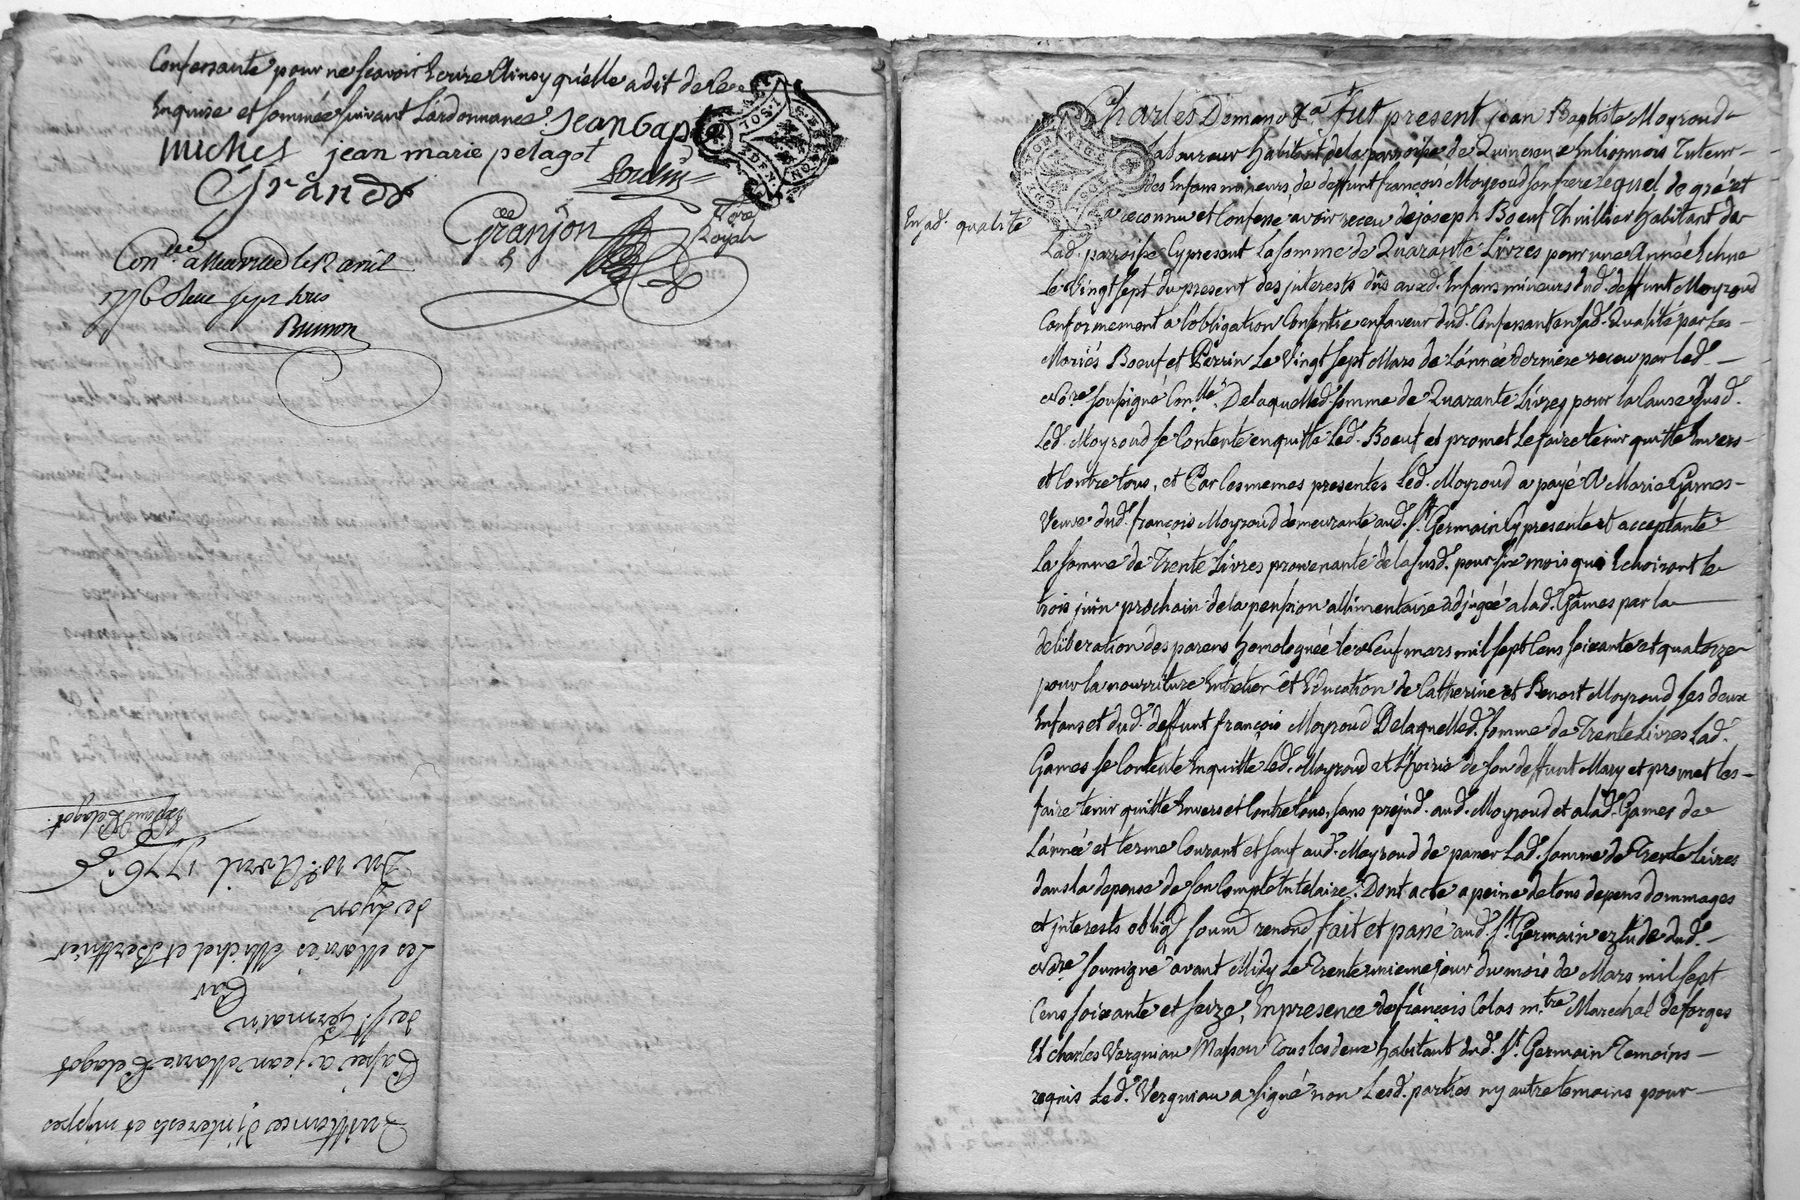 Confessante pour ne scavoir Ecrire Ainsy qu'elle a dit de ce
Enquise et sommée suivant L'ordonnance. jean bapt
michel jean marie pelagot
Grand
Granjon
nore
Royal
Con.lee a le 12 avril
1776
Du 10e. Avril 1776
Quittance d'jnterests et nippes
Passé a jean Marie Pelagot
de St. Germain
Par
Les Mariés Michel et Berthier
de Lyon
Charles Demano Fut present jean Baptiste Moyroud
Laboureur habitant de la parroisse de en Lionnois Tuteur
des Enfans mineurs de deffunt françois Moyroud son frere Lequel de gré et
En sad. qualité
a reconnu et Confessé avoir receu de joseph Boeuf Thuillier habitant de
Lad. parroisse Cy present La somme de Quarante Livres pour une Année Echue
Le Vingt sept du present des jnterests dûs auxd. Enfans mineurs dud. deffunt Moyroud
Conformement a L'obligation Consentie en faveur dud. Confessant en sad. Qualité par Les
Mariés Boeuf et Perrin Le Vingt sept Mars de L'année derniere receu par led.
Nore. soussigné Con.llé. De laquelled. somme de Quarante Livres pour la Cause susd.
Led. Moyroud se Contente en quitte Led. Boeuf et promet Le faire tenir quitte Envers
et Contre tous, et Par Les memes presentes Led. Moyroud a payé A Marie Games
Veuve dud. françois Moyroud demeurante aud. St. Germain Cy presente et acceptante
La somme de Trente Livres provenante de la susd. pour six mois qui Echoiront le
trois juin prochain de la pension allimentaire adjugée a lad. Games par la
deliberation des parens homologuée le Neuf mars mil sept Cens soixante et quatorze
pour la nourriture Entretien et Education de Catherine et Benoit Moyroud ses deux
Enfans et dud. deffunt françois Moyroud De laquelled. somme de Trente Livres Lad.
Games se Contente En quitte Led. Moyroud et L'hoirie de son deffunt Mary et promet les
faire tenir quitte Envers et Contre tous, sans prejud. aud. Moyroud et a lad. Games de
L'année et terme Courant et sauf aud. Moyroud de passer Lad. somme de Trente Livres
dans la depense de son Compte tutelaire. Dont acte a peine de tous depens dommages
et jnterests oblig. soum renond fait et passé aud. St. Germain etude dud.
Nore. soussigné avant Midy Le Trente unieme jour du mois de Mars mil sept
Cens soixante et seize, En presence de françois Colas m.tre Marechal de forges
Et charles Vergniau Masson Tous Les deux habitant dud. St. Germain Temoins
requis Led. Vergniau a signé non Lesd. parties ny autre temoins pour